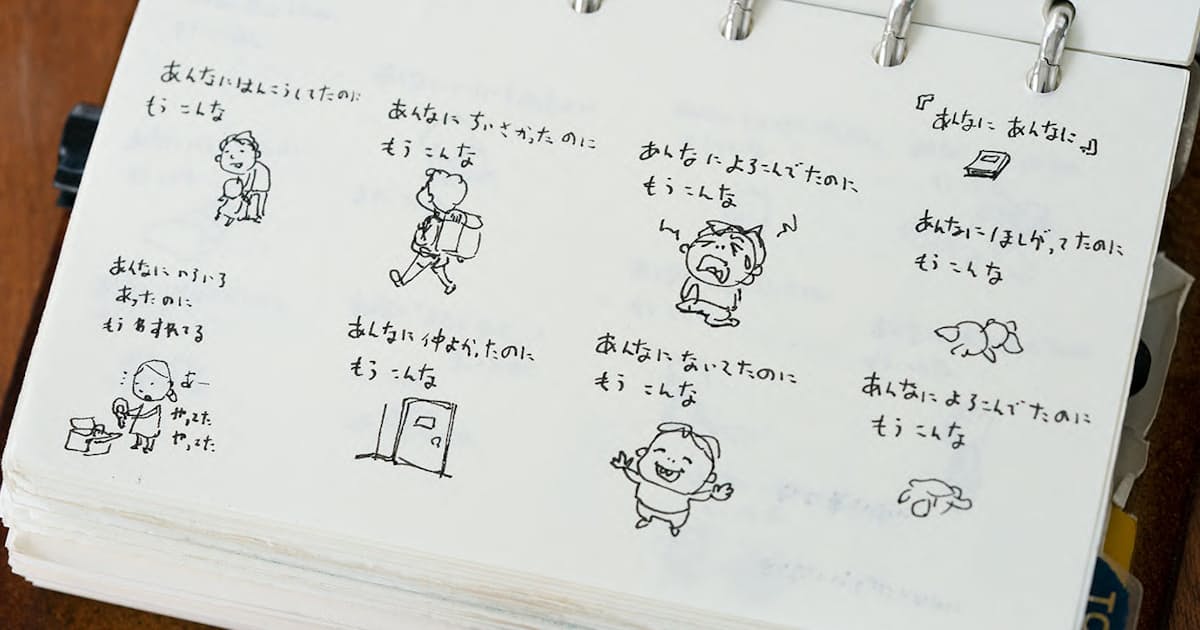 『あんなに あんなに』
あんなに ほしがってたのに
もう こんな
あんなに よろこんでたのに
もう こんな
あんなに よろこんでたのに
もう こんな
あんなに ないてたのに
もう こんな
あんなに ちいさかったのに
もう こんな
あんなに 仲よかったのに
もう こんな
あんなにはんこうしてたのに
もう こんな
あんなに いろいろ
あったのに
もう わすれてる
あー
やってた
やってた